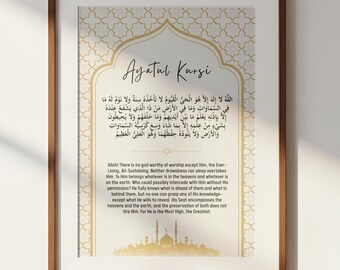 Ayatul Kursi
اللَّهُ لَا إِلَهَ إِلَّا هُوَ الْحَيُّ الْقَيُّومُ لَا تَأْخُذُهُ سِنَةٌ وَلَا نَوْمٌ لَهُ مَا
فِي السَّمَاوَاتِ وَمَا فِي الْأَرْضِ مَنْ ذَا الَّذِي يَشْفَعُ عِنْدَهُ
إِلَّا بِإِذْنِهِ يَعْلَمُ مَا بَيْنَ أَيْدِيهِمْ وَمَا خَلْفَهُمْ وَلَا يُحِيطُونَ
بِشَيْءٍ مِنْ عِلْمِهِ إِلَّا بِمَا شَاءَ وَسِعَ كُرْسِيُّهُ السَّمَاوَاتِ
وَالْأَرْضَ وَلَا يَئُودُهُ حِفْظُهُمَا وَهُوَ الْعَلِيُّ الْعَظِيمُ
Allah! There is no god worthy of worship except Him, the Ever-
Living, All-Sustaining. Neither drowsiness nor sleep overtakes
Him. To Him belongs whatever is in the heavens and whatever is
on the earth. Who could possibly intercede with Him without His
permission? He fully knows what is ahead of them and what is
behind them, but no one can grasp any of His knowledge-
except what He wills to reveal. His Seat encompasses the
heavens and the earth, and the preservation of both does not
tire Him. For He is the Most High, the Greatest.